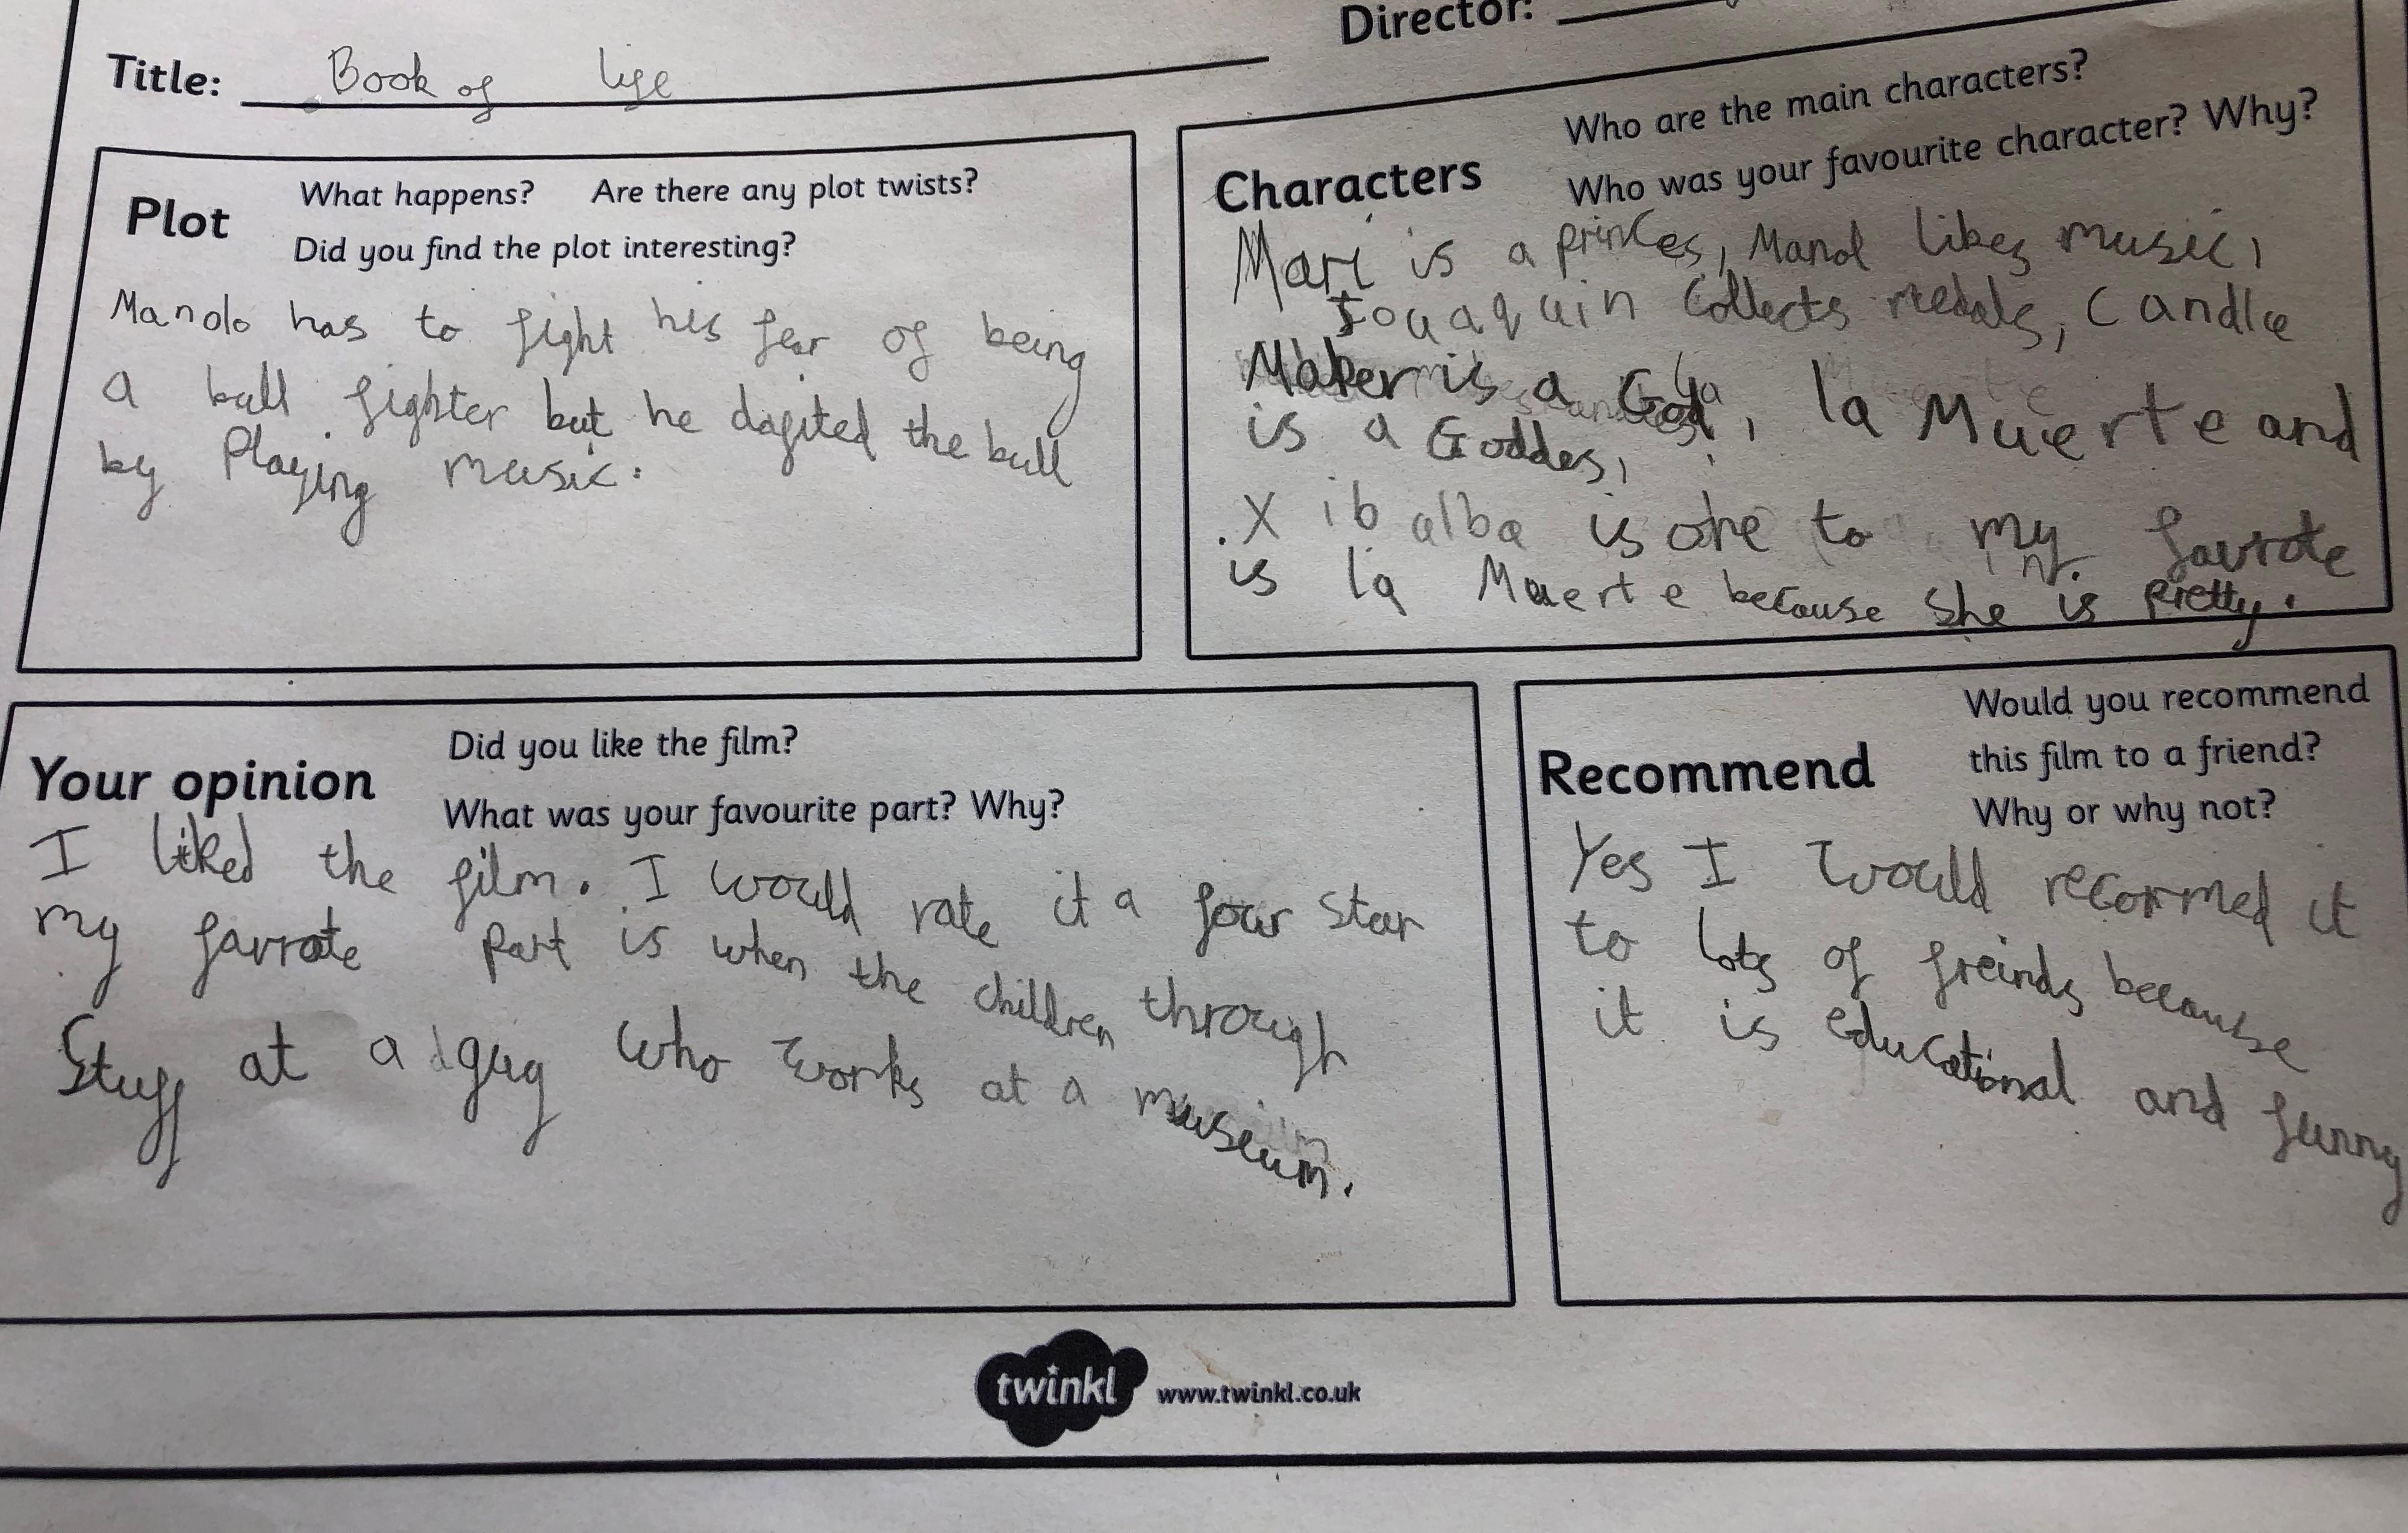 Director:
Title: Book of life
Plot What happens? Are there any plot twists?
Did you find the plot interesting?
Manolo has to fight his fear of being
a bull fighter but he dafited the bull
by Playing music.
Characters Who are the main characters?
Who was your favourite character? Why?
Mari is a princes, Manol likes music,
Jouaquin Collects medals, Candle
Maker is a God, la Muerte and
is a Goddes,
Xibalba is one to my favrote
is la Muerte because She is Pretty.
Your opinion Did you like the film?
What was your favourite part? Why?
I liked the film. I would rate it a four star
my favrote Part is when the children through
Stuff at a guy who works at a museum.
Recommend Would you recommend
this film to a friend?
Why or why not?
Yes I would recormed it
to lots of freinds because
it is educational and funny
twinkl www.twinkl.co.uk